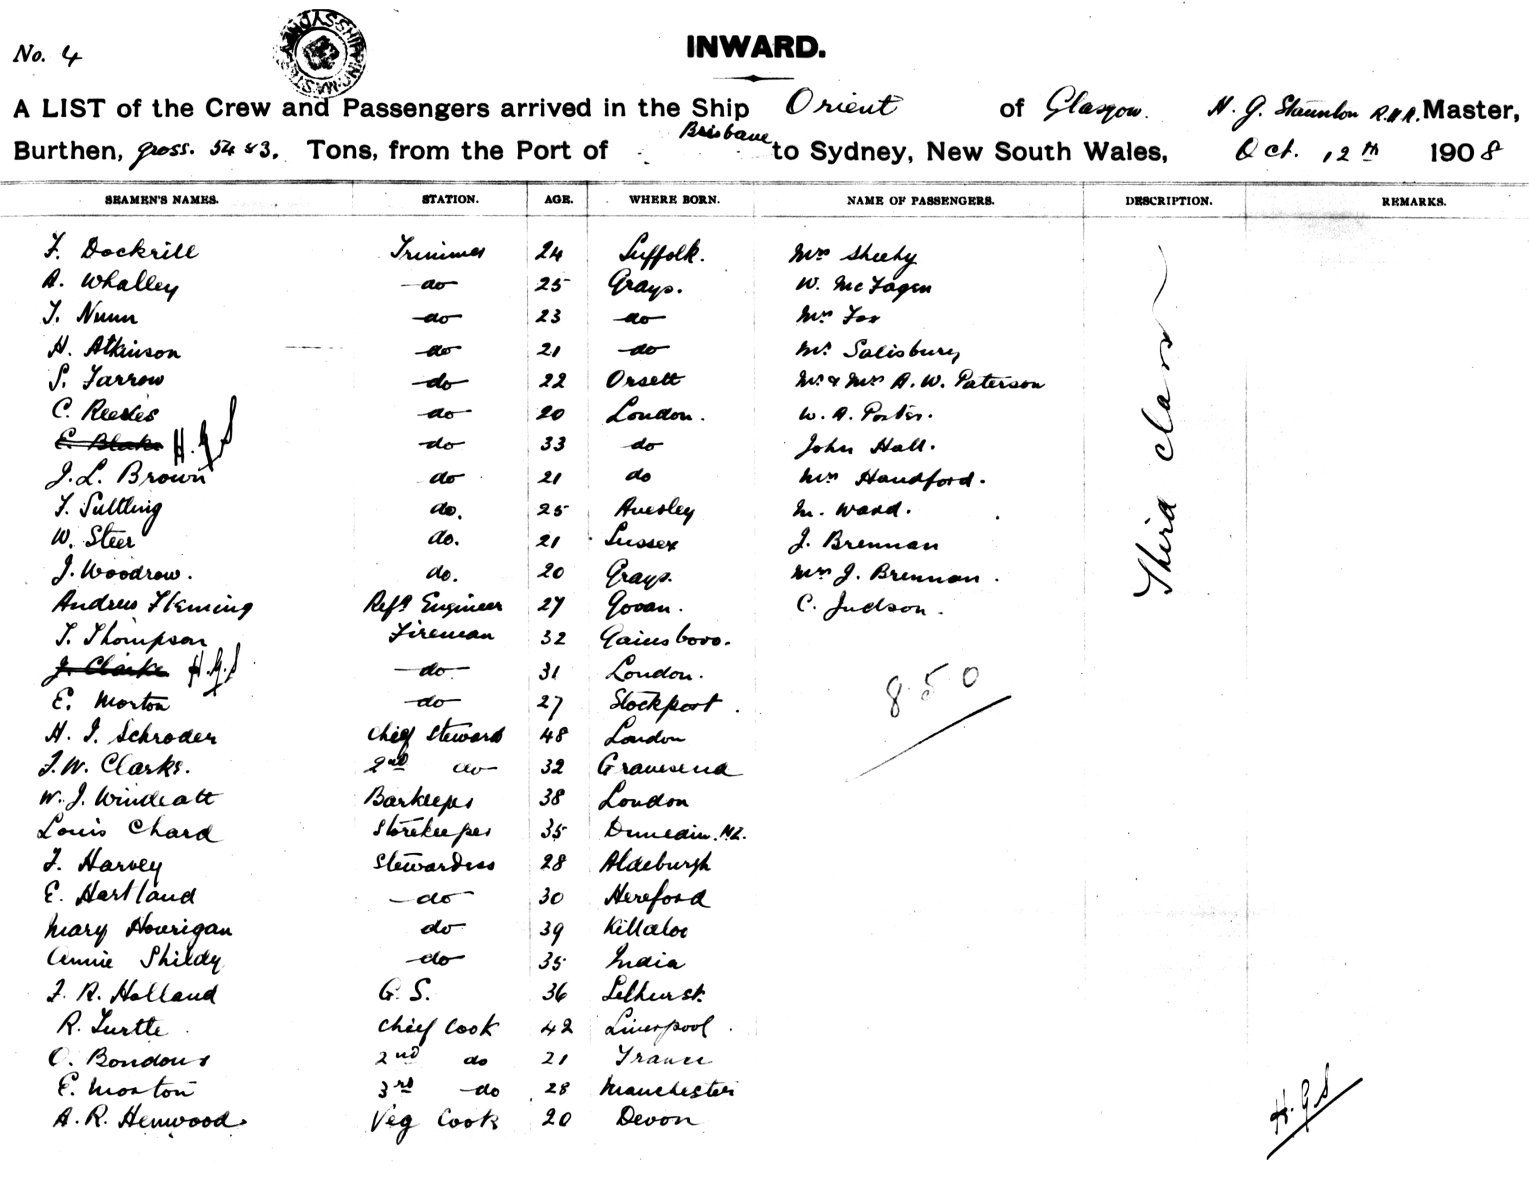 No. 4
SYDNEY SHIPPING MASTER
INWARD.
A LIST of the Crew and Passengers arrived in the Ship Orient of Glasgow. H. G. Staunton R.N.R. Master,
Burthen, gross. 5483. Tons, from the Port of Brisbane to Sydney, New South Wales, Oct. 12th 1908
SEAMEN'S NAMES. STATION. AGE. WHERE BORN. NAME OF PASSENGERS. DESCRIPTION. REMARKS.
F. Dockrill Trimmer 24 Suffolk. Mrs Sheehy
A. Whalley do 25 Grays. W. McFagen
T. Nunn do 23 do Mrs Fox
H. Atkinson do 21 do Mr. Salisbury
S. Farrow do 22 Orsett Mr & Mrs A. W. Paterson
C. Reeves do 20 London. W. A. Porter.
E. Blake H.G.S do 33 do John Hall.
J. L. Brown do 21 do Mrs Handford.
F. Suttling do. 25 Aveley M. Ward.
W. Steer do. 21 Sussex J. Brennan
J. Woodrow. do. 20 Grays. Mrs J. Brennan.
Andrew Fleming Refg Engineer 27 Govan. C. Judson.
Third Class
T. Thompson Fireman 32 Gainsboro.
J. Clarke H.G.S do 31 London.
E. Morton do 27 Stockport.
850
H. J. Schroder Chief Steward 48 London
F. W. Clarke. 2nd do 32 Gravesend
W. J. Windeatt Barkeeper 38 London
Louis Chard Storekeeper 35 Dunedin. NZ.
F. Harvey Stewardess 28 Aldeburgh
E. Hartland do 30 Hereford
Mary Hourigan do 39 Killaloe
Annie Shildy do 35 India
F. R. Holland G. S. 36 Selhurst
R. Turtle Chief Cook 42 Liverpool.
O. Bondous 2nd do 21 France
E. Morton 3rd do 28 Manchester
A. R. Henwood. Veg Cook 20 Devon
H.G.S